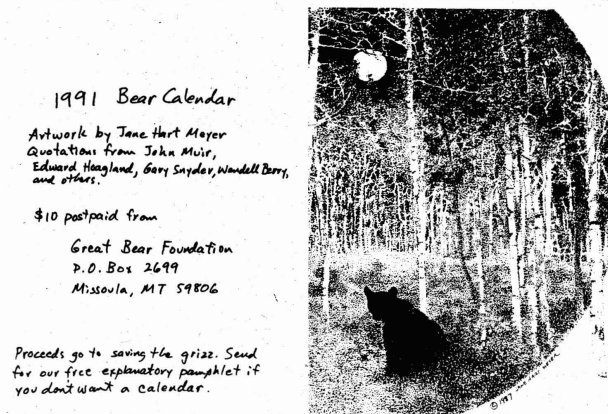 1991 Bear Calendar
Artwork by Jane Hart Meyer
Quotations from John Muir,
Edward Hoagland, Gary Snyder, Wendell Berry,
and others.
$10 postpaid from
Great Bear Foundation
P.O. Box 2699
Missoula, MT 59806
Proceeds go to saving the grizz. Send
for our free explanatory pamphlet if
you don't want a calendar.
© 1987